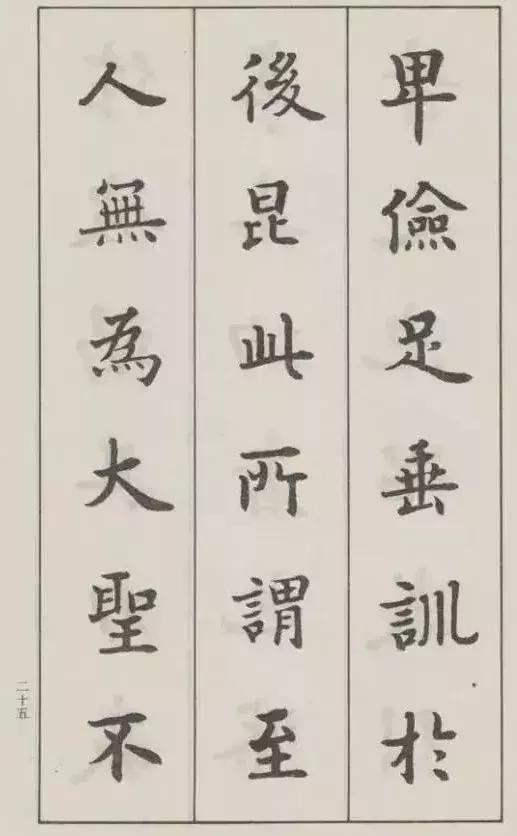 卑儉足垂訓於
後昆此所謂至
人無為大聖不
二十五